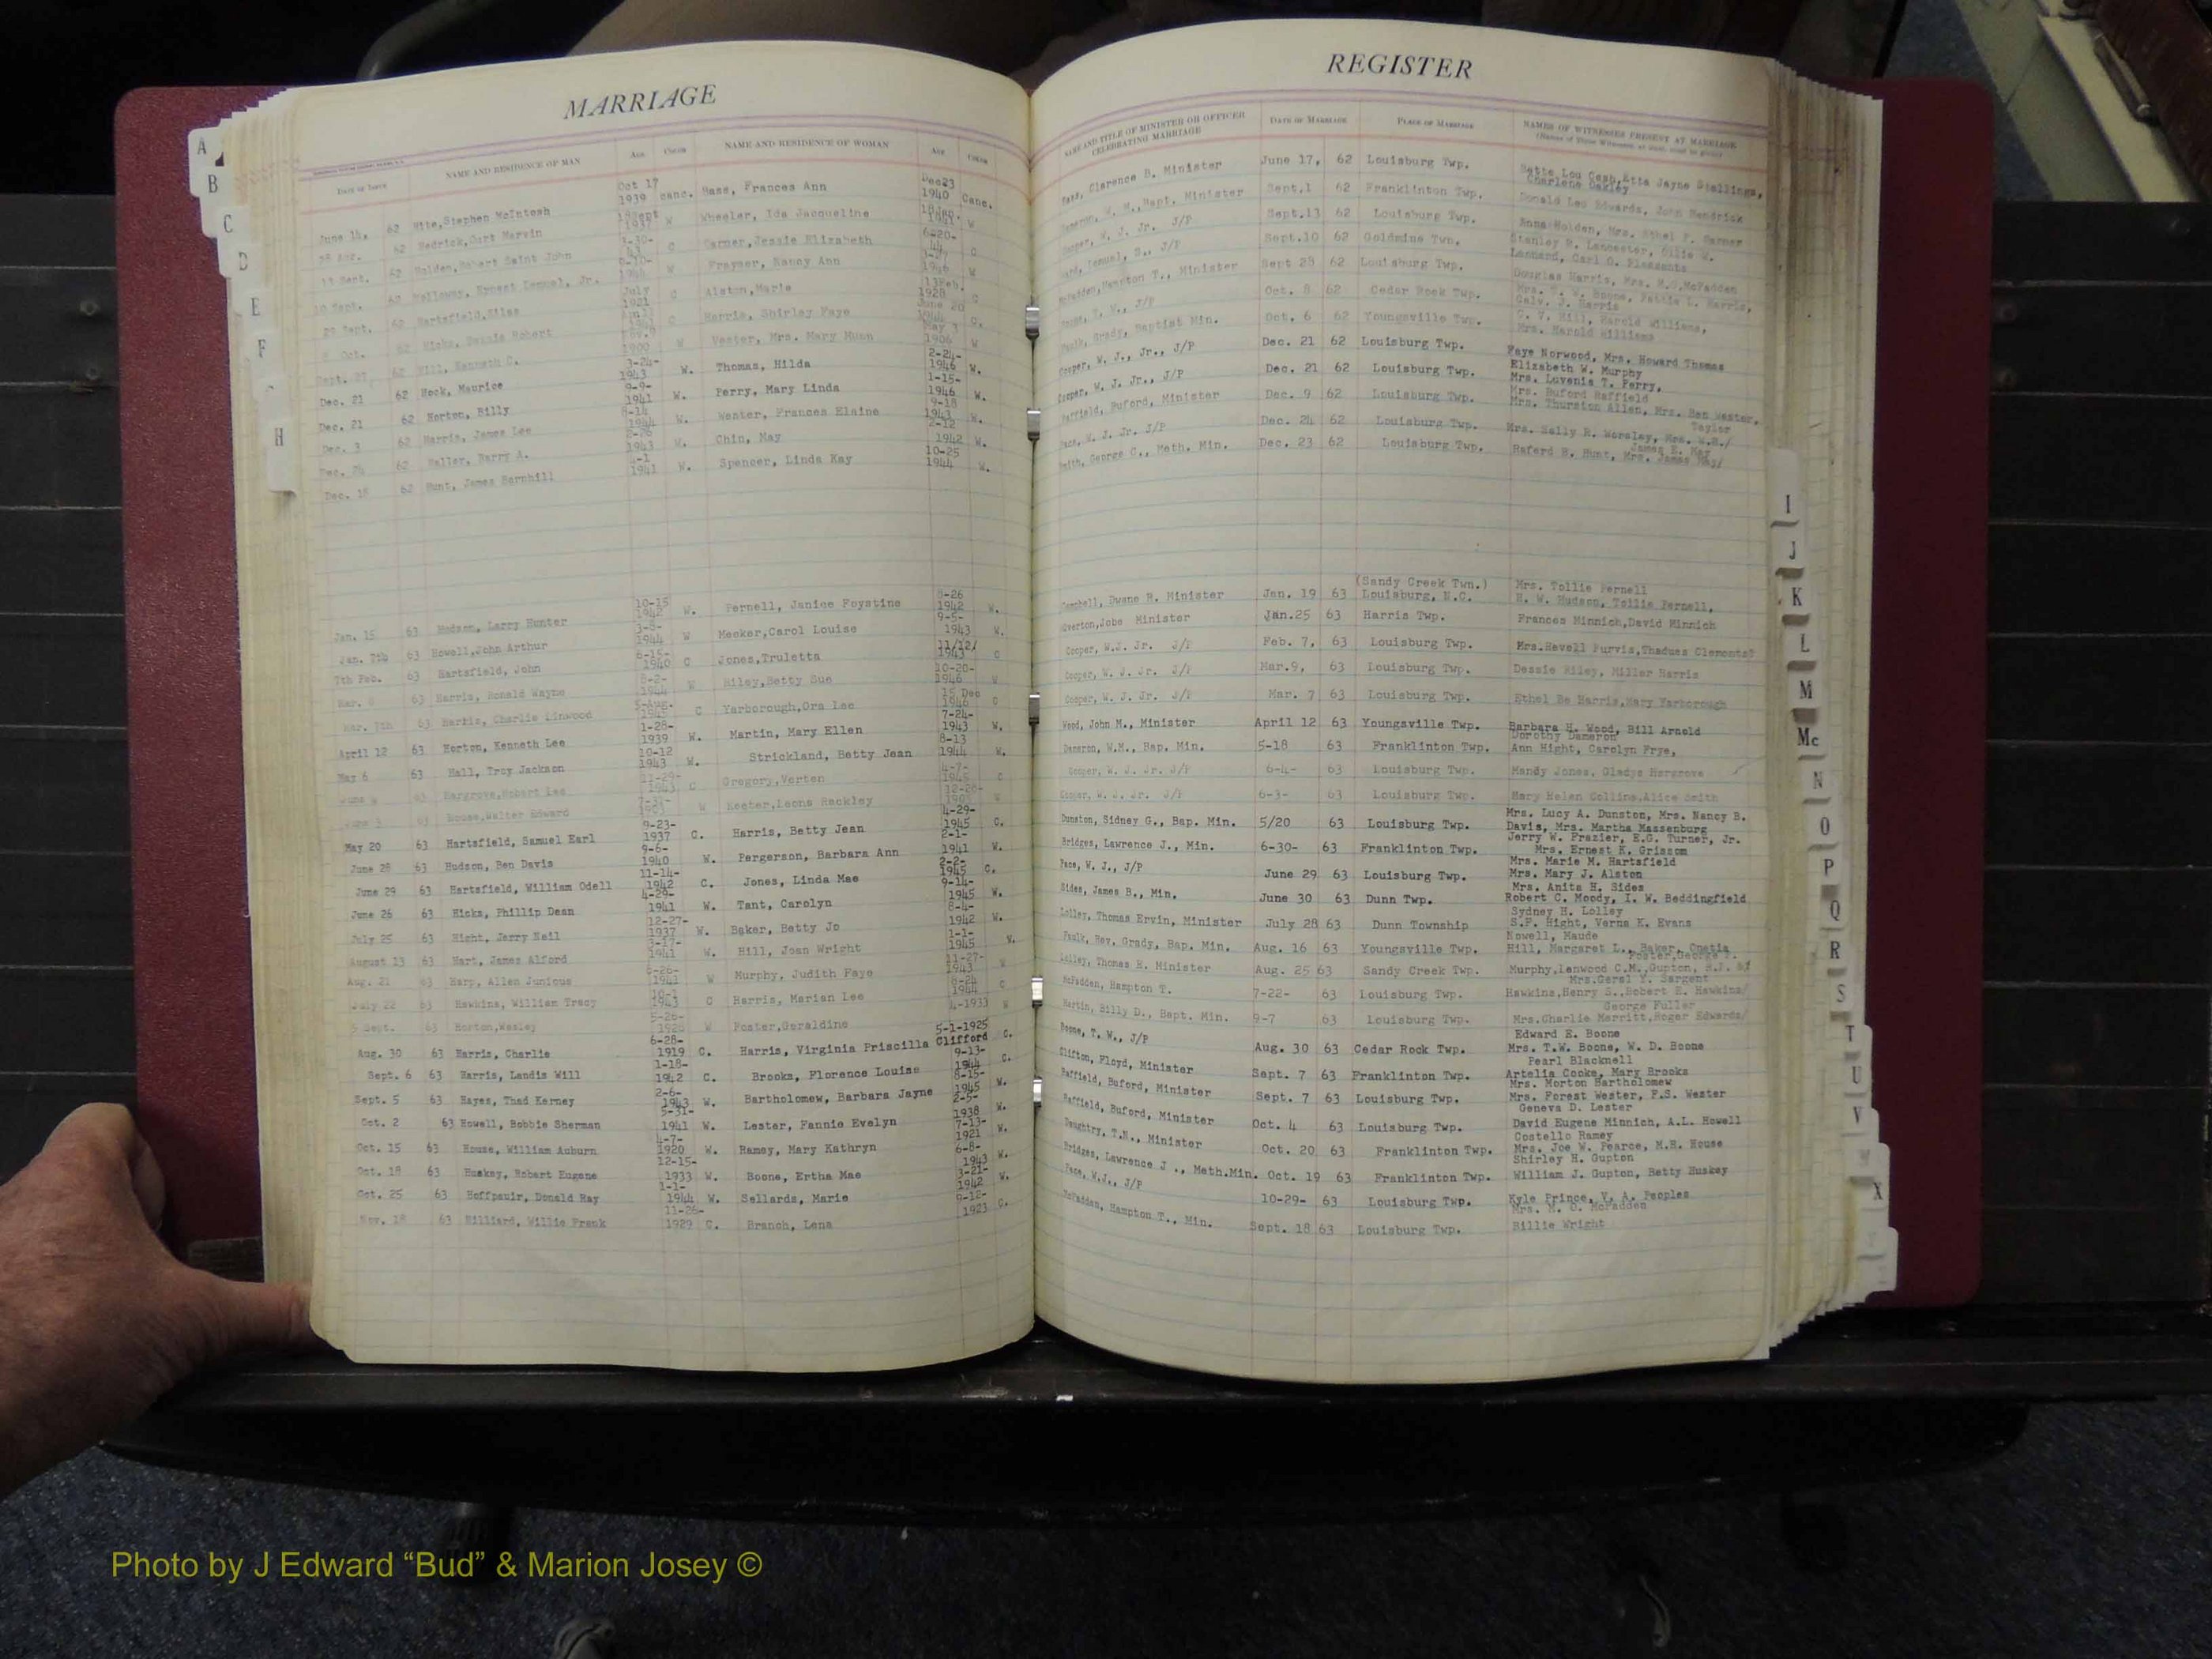 MARRIAGE
DATE OF ISSUE NAME AND RESIDENCE OF MAN AGE COLOR NAME AND RESIDENCE OF WOMAN AGE COLOR
June 14, 62 Hite,Stephen McIntosh Oct 17 1939 canc. Hass, Frances Ann Dec23 1940 Canc.
62 Hedrick,Curt Marvin 1937 W Wheeler, Ida Jacqueline W
11 Sept. 62 Holden,Robert Saint John C Garner,Jessie Elizabeth 6-20-44 C
10 Sept. 62 Holloway, Ernest Lemuel, Jr. W Frayser, Nancy Ann W
29 Sept. 62 Hartsfield,Silas July 1921 C Alston,Marie 1928 C
8 Oct. 62 Hicks, Robert C Harris, Shirley Faye June 20 C.
Sept. 27 62 Hill, Kenneth C. 1900 W Vester, Mrs. Mary Munn May 3 1906 W
Dec. 21 62 Hock, Maurice 3-24-1943 W. Thomas, Hilda 2-24-1946 W.
Dec. 21 62 Horton, Billy 9-9-1941 W. Perry, Mary Linda 1-15-1946 W.
Dec. 3 62 Harris, James Lee 8-14 1944 W. Wester, Frances Elaine 9-18 1943 W.
Dec. 24 62 Haller, Harry A. 2-26 1943 W. Chin, May 2-12 1942 W.
Dec. 18 62 Hunt, James Barnhill 1941 W. Spencer, Linda Kay 10-25 1944 W.
Jan. 15 63 Hudson, Larry Hunter 10-15 1942 W. Pernell, Janice Foystine 8-26 1942 W.
Jan. 7th 63 Howell,John Arthur 3-8-1944 W Meeker,Carol Louise 9-5-1943 W.
7th Feb. 63 Hartsfield, John 6-15-1940 C Jones,Truletta 11/12/1943 C
Mar. 8 63 Harris, Ronald Wayne 8-2-1944 W Riley,Betty Sue 10-20-1946 W
Mar. 7th 63 Harris, Charlie Linwood 5-Aug. C Yarborough,Ora Lee 15 Dec 1946 C
April 12 63 Horton, Kenneth Lee 1-28-1939 W. Martin, Mary Ellen 7-24-1943 W.
May 6 63 Hall, Troy Jackson 10-12 1943 W. Strickland, Betty Jean 8-13 1944 W.
June 4 63 Hargrove,Robert Lee 1943 C Gregory,Verten 4-7-1945 C
June 3 63 House,Walter Edward 1903 W Keeter,Leona Rackley 12-26-W
May 20 63 Hartsfield, Samuel Earl 9-23-1937 C. Harris, Betty Jean 4-29-1945 C.
June 28 63 Hudson, Ben Davis 9-6-1940 W. Pergerson, Barbara Ann 2-1-1941 W.
June 29 63 Hartsfield, William Odell 11-14-1942 C. Jones, Linda Mae 2-2-1945 C.
June 26 63 Hicks, Phillip Dean 4-29-1941 W. Tant, Carolyn 9-14-1945 W.
July 25 63 Hight, Jerry Neil 12-27-1937 W. Baker, Betty Jo 8-4-1942 W.
August 13 63 Hart, James Alford 3-17-1941 W. Hill, Joan Wright 1-1-1945 W.
Aug. 21 63 Harp, Allen Junious 6-26-1941 W Murphy, Judith Faye 11-27-1943 W
July 22 63 Hawkins, William Tracy 1943 C Harris, Marian Lee 1944 C
5 Sept. 63 Horton,Wesley 5-26-W Foster,Geraldine 4-1933 W
Aug. 30 63 Harris, Charlie 6-28-1919 C. Harris, Virginia Priscilla Clifford 5-1-1925 C.
Sept. 6 63 Harris, Landis Will 1-18-1942 C. Brooks, Florence Louise 9-13-1944 C.
Sept. 5 63 Hayes, Thad Kerney 2-6-1943 W. Bartholomew, Barbara Jayne 8-15-1945 W.
Oct. 2 63 Howell, Bobbie Sherman 5-31-1941 W. Lester, Fannie Evelyn 2-5-1938 W.
Oct. 15 63 House, William Auburn 4-7-1920 W. Ramey, Mary Kathryn 7-13-1921 W.
Oct. 18 63 Huskey, Robert Eugene 12-15-1933 W. Boone, Ertha Mae 6-8-1943 W.
Oct. 25 63 Hoffpauir, Donald Ray 1-1-1944 W. Sellards, Marie 3-21-1942 W.
Nov. 18 63 Hilliard, Willie Frank 11-26-1929 C. Branch, Lena 9-12-1923 C.
REGISTER
NAME AND TITLE OF MINISTER OR OFFICER CELEBRATING MARRIAGE DATE OF MARRIAGE PLACE OF MARRIAGE NAMES OF WITNESSES PRESENT AT MARRIAGE
Clarence B. Minister June 17, 62 Louisburg Twp. Bette Lou Cash,Etta Jayne Stallings, Charlene Oakley
Cameron, W. M.,Bapt. Minister Sept.1 62 Franklinton Twp. Donald Leo Edwards, John Hendrick
Cooper, W. J. Jr. J/P Sept.13 62 Louisburg Twp. Anna Holden, Mrs. Ethel F. Garner
Lemuel, S., J/P Sept.10 62 Goldmine Twn. Stanley R. Lancaster, Ollie W. Leonard, Carl O. Pleasants
McFadden,Hampton T., Minister Sept 28 62 Louisburg Twp. Douglas Harris, Mrs. M.O.McFadden
J/P Oct. 8 62 Cedar Rock Twp. Mrs. T. W. Boone, Pattie L. Harris, Calv. J. Harris
Faulk, Grady, Baptist Min. Oct. 6 62 Youngsville Twp. C. V. Hill, Harold Williams, Mrs. Harold Williams
Cooper, W. J., Jr., J/P Dec. 21 62 Louisburg Twp. Faye Norwood, Mrs. Howard Thomas
Cooper, W. J. Jr., J/P Dec. 21 62 Louisburg Twp. Elizabeth W. Murphy Mrs. Luvenia T. Perry,
Raffield, Buford, Minister Dec. 9 62 Louisburg Twp. Mrs. Buford Raffield Mrs. Thurston Allen, Mrs. Ben Wester,
Pace, W. J. Jr. J/P Dec. 24 62 Louisburg Twp. Mrs. Sally R. Worsley, Mrs. W.R./ Taylor
Smith, George C., Meth. Min. Dec. 23 62 Louisburg Twp. Raferd B. Hunt, Mrs. James May/ James E. May
Campbell, Dwane R. Minister Jan. 19 63 (Sandy Creek Twn.) Louisburg, N.C. Mrs. Tollie Pernell H. W. Hudson, Tollie Pernell,
Overton,Jobe Minister Jan.25 63 Harris Twp. Frances Minnich,David Minnich
Cooper, W.J. Jr. J/P Feb. 7, 63 Louisburg Twp. Mrs.Hevell Purvis,Thadues Clements?
Cooper, W. J. Jr. J/P Mar.9, 63 Louisburg Twp. Dessie Riley, Miller Harris
Cooper, W. J. Jr. J/P Mar. 7 63 Louisburg Twp. Ethel Be Harris,Mary Yarborough
Wood, John M., Minister April 12 63 Youngsville Twp. Barbara H. Wood, Bill Arnold
Dameron, W.M., Bap. Min. 5-18 63 Franklinton Twp. Dorothy Dameron Ann Hight, Carolyn Frye,
Cooper, W. J. Jr. J/P 6-4- 63 Louisburg Twp. Mandy Jones, Gladys Hargrove
Cooper, W. J. Jr. J/P 6-3- 63 Louisburg Twp. Mary Helen Collins,Alice Smith
Dunston, Sidney G., Bap. Min. 5/20 63 Louisburg Twp. Mrs. Lucy A. Dunston, Mrs. Nancy B. Davis, Mrs. Martha Massenburg
Bridges, Lawrence J., Min. 6-30- 63 Franklinton Twp. Jerry W. Frazier, E.G. Turner, Jr. Mrs. Ernest K. Grissom
Pace, W. J., J/P June 29 63 Louisburg Twp. Mrs. Marie M. Hartsfield Mrs. Mary J. Alston
Sides, James B., Min. June 30 63 Dunn Twp. Mrs. Anita H. Sides Robert C. Moody, I. W. Beddingfield
Lolley, Thomas Ervin, Minister July 28 63 Dunn Township Sydney H. Lolley S.P. Hight, Verna K. Evans
Faulk, Rev. Grady, Bap. Min. Aug. 16 63 Youngsville Twp. Nowell, Maude Hill, Margaret L., Baker, Onetia
Lolley, Thomas E. Minister Aug. 25 63 Sandy Creek Twp. Foster,George P. Murphy,Lenwood C.M.,Gupton, Mrs.Carol Y. Sargent
McFadden, Hampton T. 7-22- 63 Louisburg Twp. Hawkins,Henry S.,Robert E. Hawkins/ George Fuller
Martin, Billy D., Bapt. Min. 9-7 63 Louisburg Twp. Mrs.Charlie Merritt,Roger Edwards/
Boone, T. W., J/P Aug. 30 63 Cedar Rock Twp. Edward E. Boone Mrs. T.W. Boone, W. D. Boone
Clifton, Floyd, Minister Sept. 7 63 Franklinton Twp. Pearl Blacknell Artelia Cooke, Mary Brooks
Raffield, Buford, Minister Sept. 7 63 Louisburg Twp. Mrs. Morton Bartholomew Mrs. Forest Wester, F.S. Wester
Raffield, Buford, Minister Oct. 4 63 Louisburg Twp. Geneva D. Lester David Eugene Minnich, A.L. Howell
Daughtry, T.N., Minister Oct. 20 63 Franklinton Twp. Costello Ramey Mrs. Joe W. Pearce, M.H. House
Bridges, Lawrence J ., Meth.Min. Oct. 19 63 Franklinton Twp. Shirley H. Gupton William J. Gupton, Betty Huskey
Pace, W.J., J/P 10-29- 63 Louisburg Twp. Kyle Prince, V. A. Peoples
McFadden, Hampton T., Min. Sept. 18 63 Louisburg Twp. Mrs. M. O. McFadden Billie Wright
A
B
C
D
E
F
H
I
J
K
L
M
Mc
N
O
P
Q
R
S
T
U
V
W
X
Photo by J Edward “Bud” & Marion Josey ©